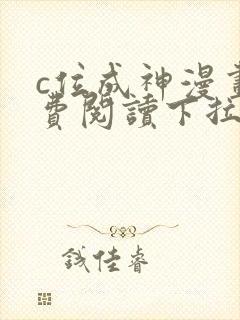 c位成神漫畫
費閱讀下拉
鋨佳睿